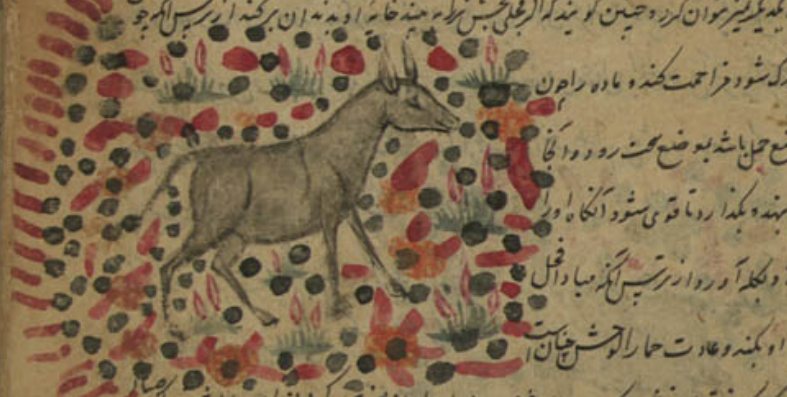 یکدیگر تمیز نتوان کرد و چنین گویند که اگر فحلی جحش نر بیند خایه او بدندان بر کند از ترس آنکه چو
شود مزاحمت کند و ماده را چون
وضع حمل باشد بموضع سخت رود و آنجا
بنهد و بگذارد تا قوی شود آنگاه او را
بکله آورد از ترس آنکه مبادا فحل
او بکند و عادت حمار الوحش چنان است